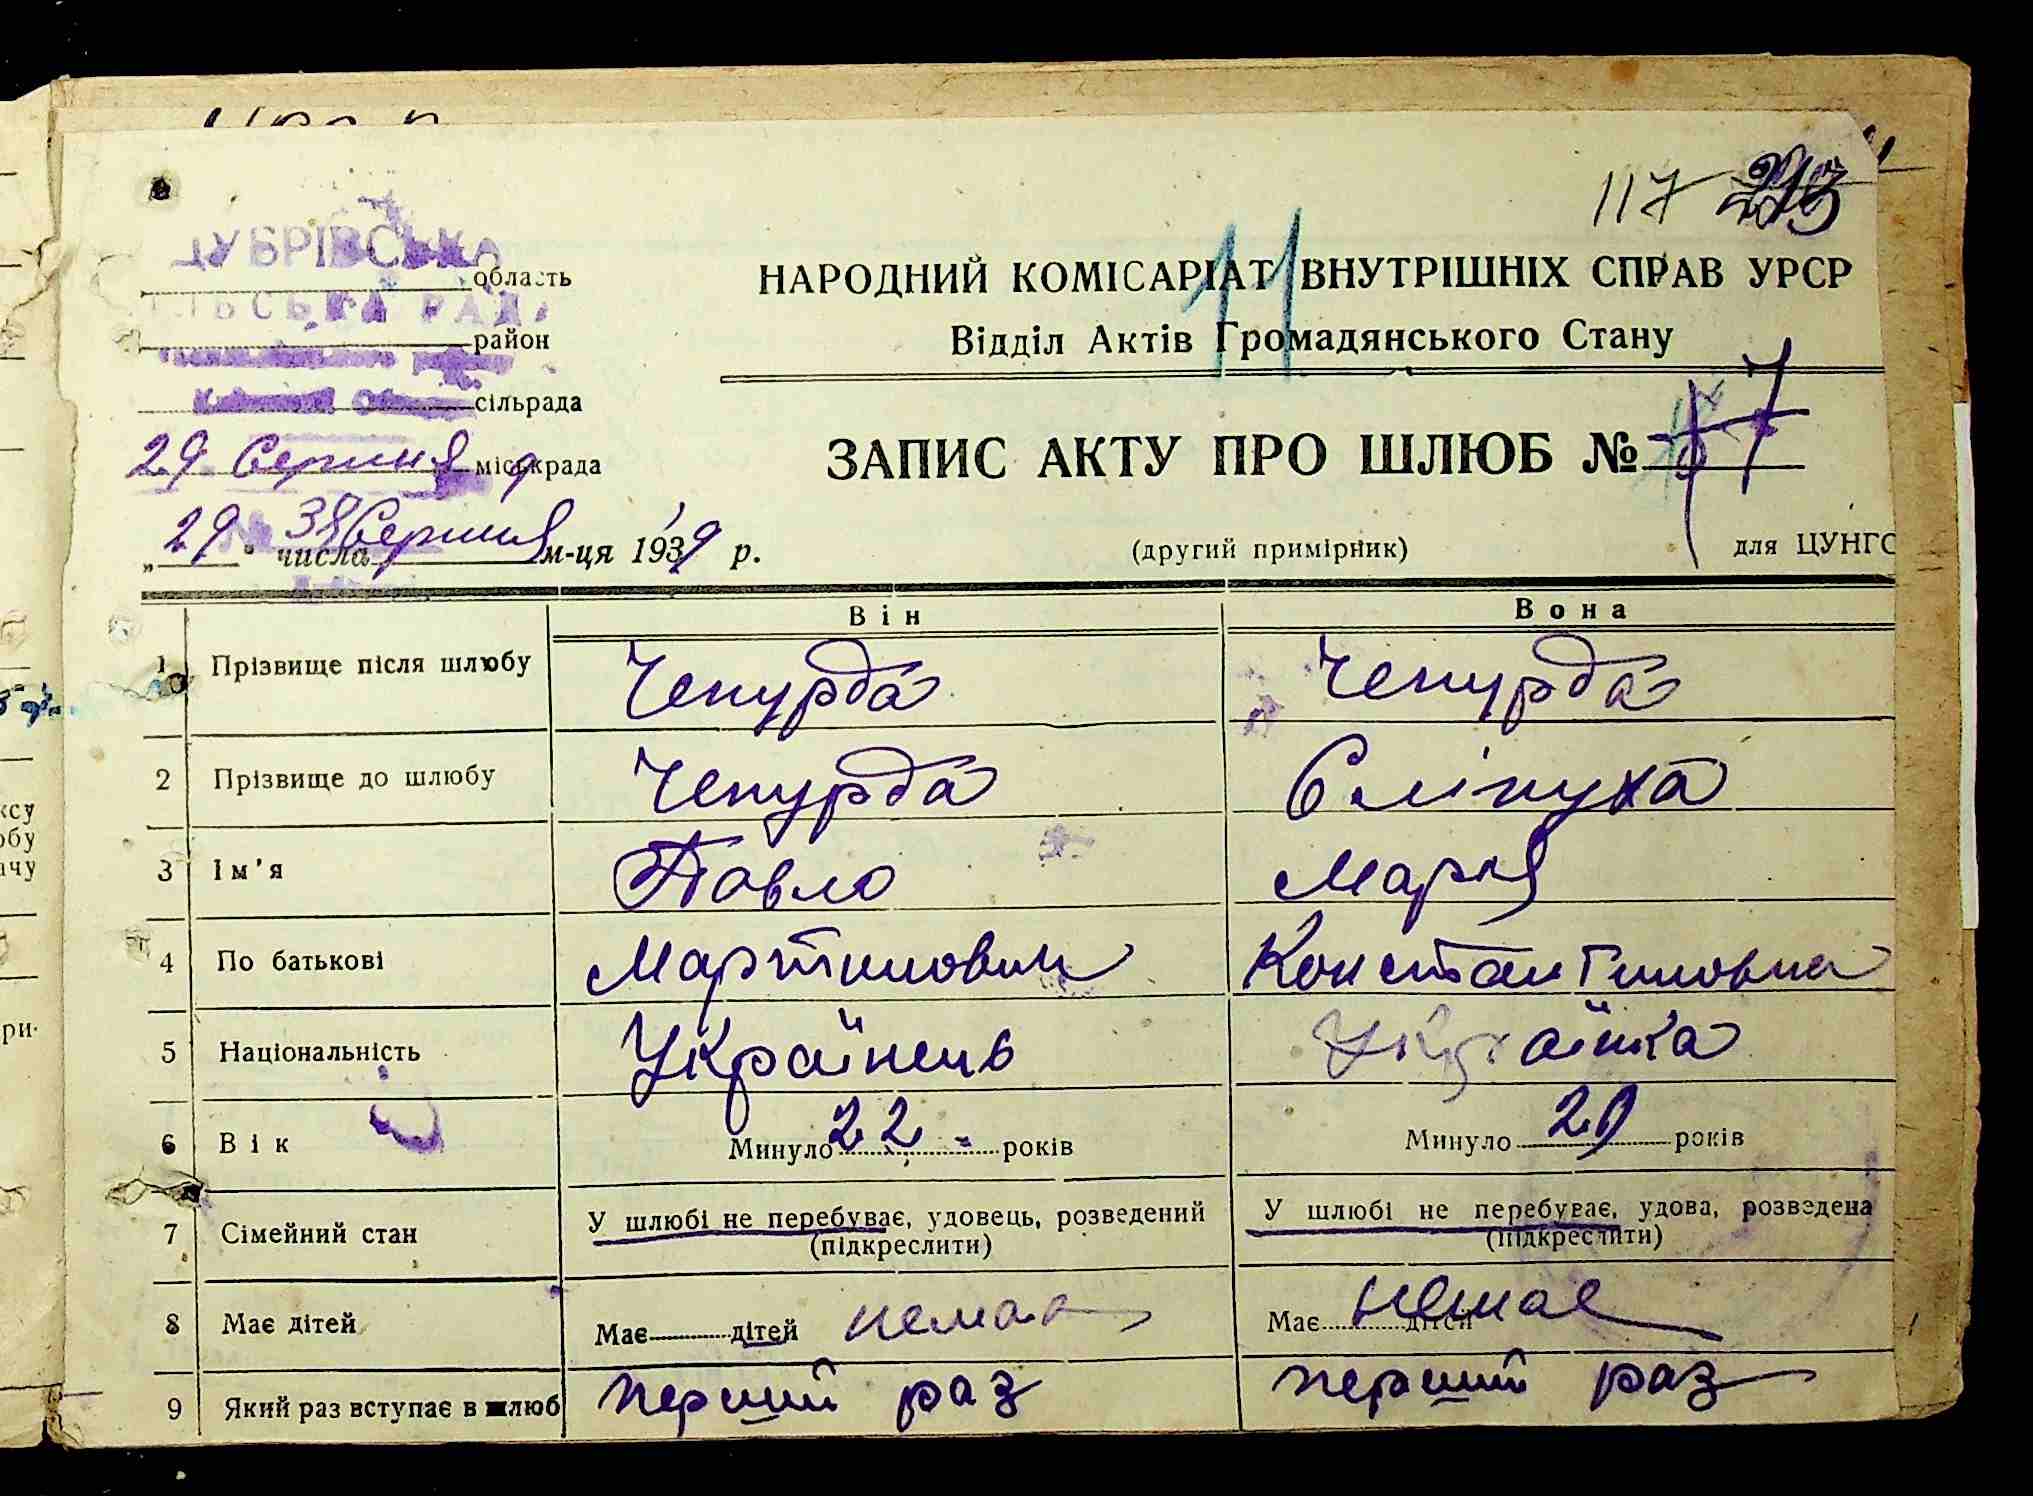 117
ДУБРІВСЬКА
область
СІЛЬСЬКА РАДА
район
сільрада
29 Серпня міськрада
„29“ числа Серпня м-ця 1939 р.
НАРОДНИЙ КОМІСАРІАТ ВНУТРІШНІХ СПРАВ УРСР
11
Відділ Актів Громадянського Стану
ЗАПИС АКТУ ПРО ШЛЮБ № 7
(другий примірник)
для ЦУНГО
Він Вона
1 Прізвище після шлюбу Чепурда Чепурда
2 Прізвище до шлюбу Чепурда Сліпуха
3 Ім'я Павло Мария
4 По батькові Мартинович Константиновна
5 Національність Українець Українка
6 Вік Минуло 22 років Минуло 20 років
7 Сімейний стан У шлюбі не перебуває, удовець, розведений У шлюбі не перебуває, удова, розведена
(підкреслити) (підкреслити)
8 Має дітей Має дітей немає Має дітей немає
9 Який раз вступає в шлюб перший раз перший раз
ксу
обу
ачу
ри-